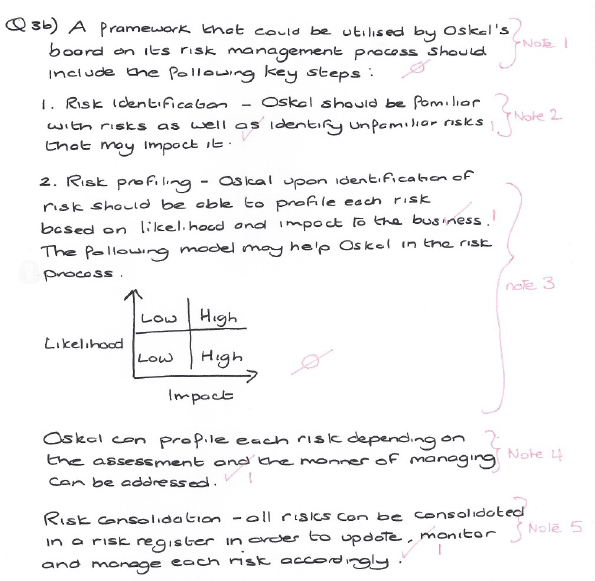 Q3b) A framework that could be utilised by Oskal's Note 1
board on its risk management process should
include the following key steps :
1. Risk Identification - Oskal should be familiar
with risks as well as identify unfamiliar risks 1 Note 2
that may impact it.
2. Risk profiling - Oskal upon identification of
risk should be able to profile each risk
based on likelihood and impact to the business. 1
The following model may help Oskal in the risk
process. note 3
Low High
Likelihood
Low High
Impact
Oskal can profile each risk depending on
the assessment and the manner of managing Note 4
can be addressed. 1
Risk consolidation - all risks can be consolidated
in a risk register in order to update, monitor Note 5
and manage each risk accordingly. 1